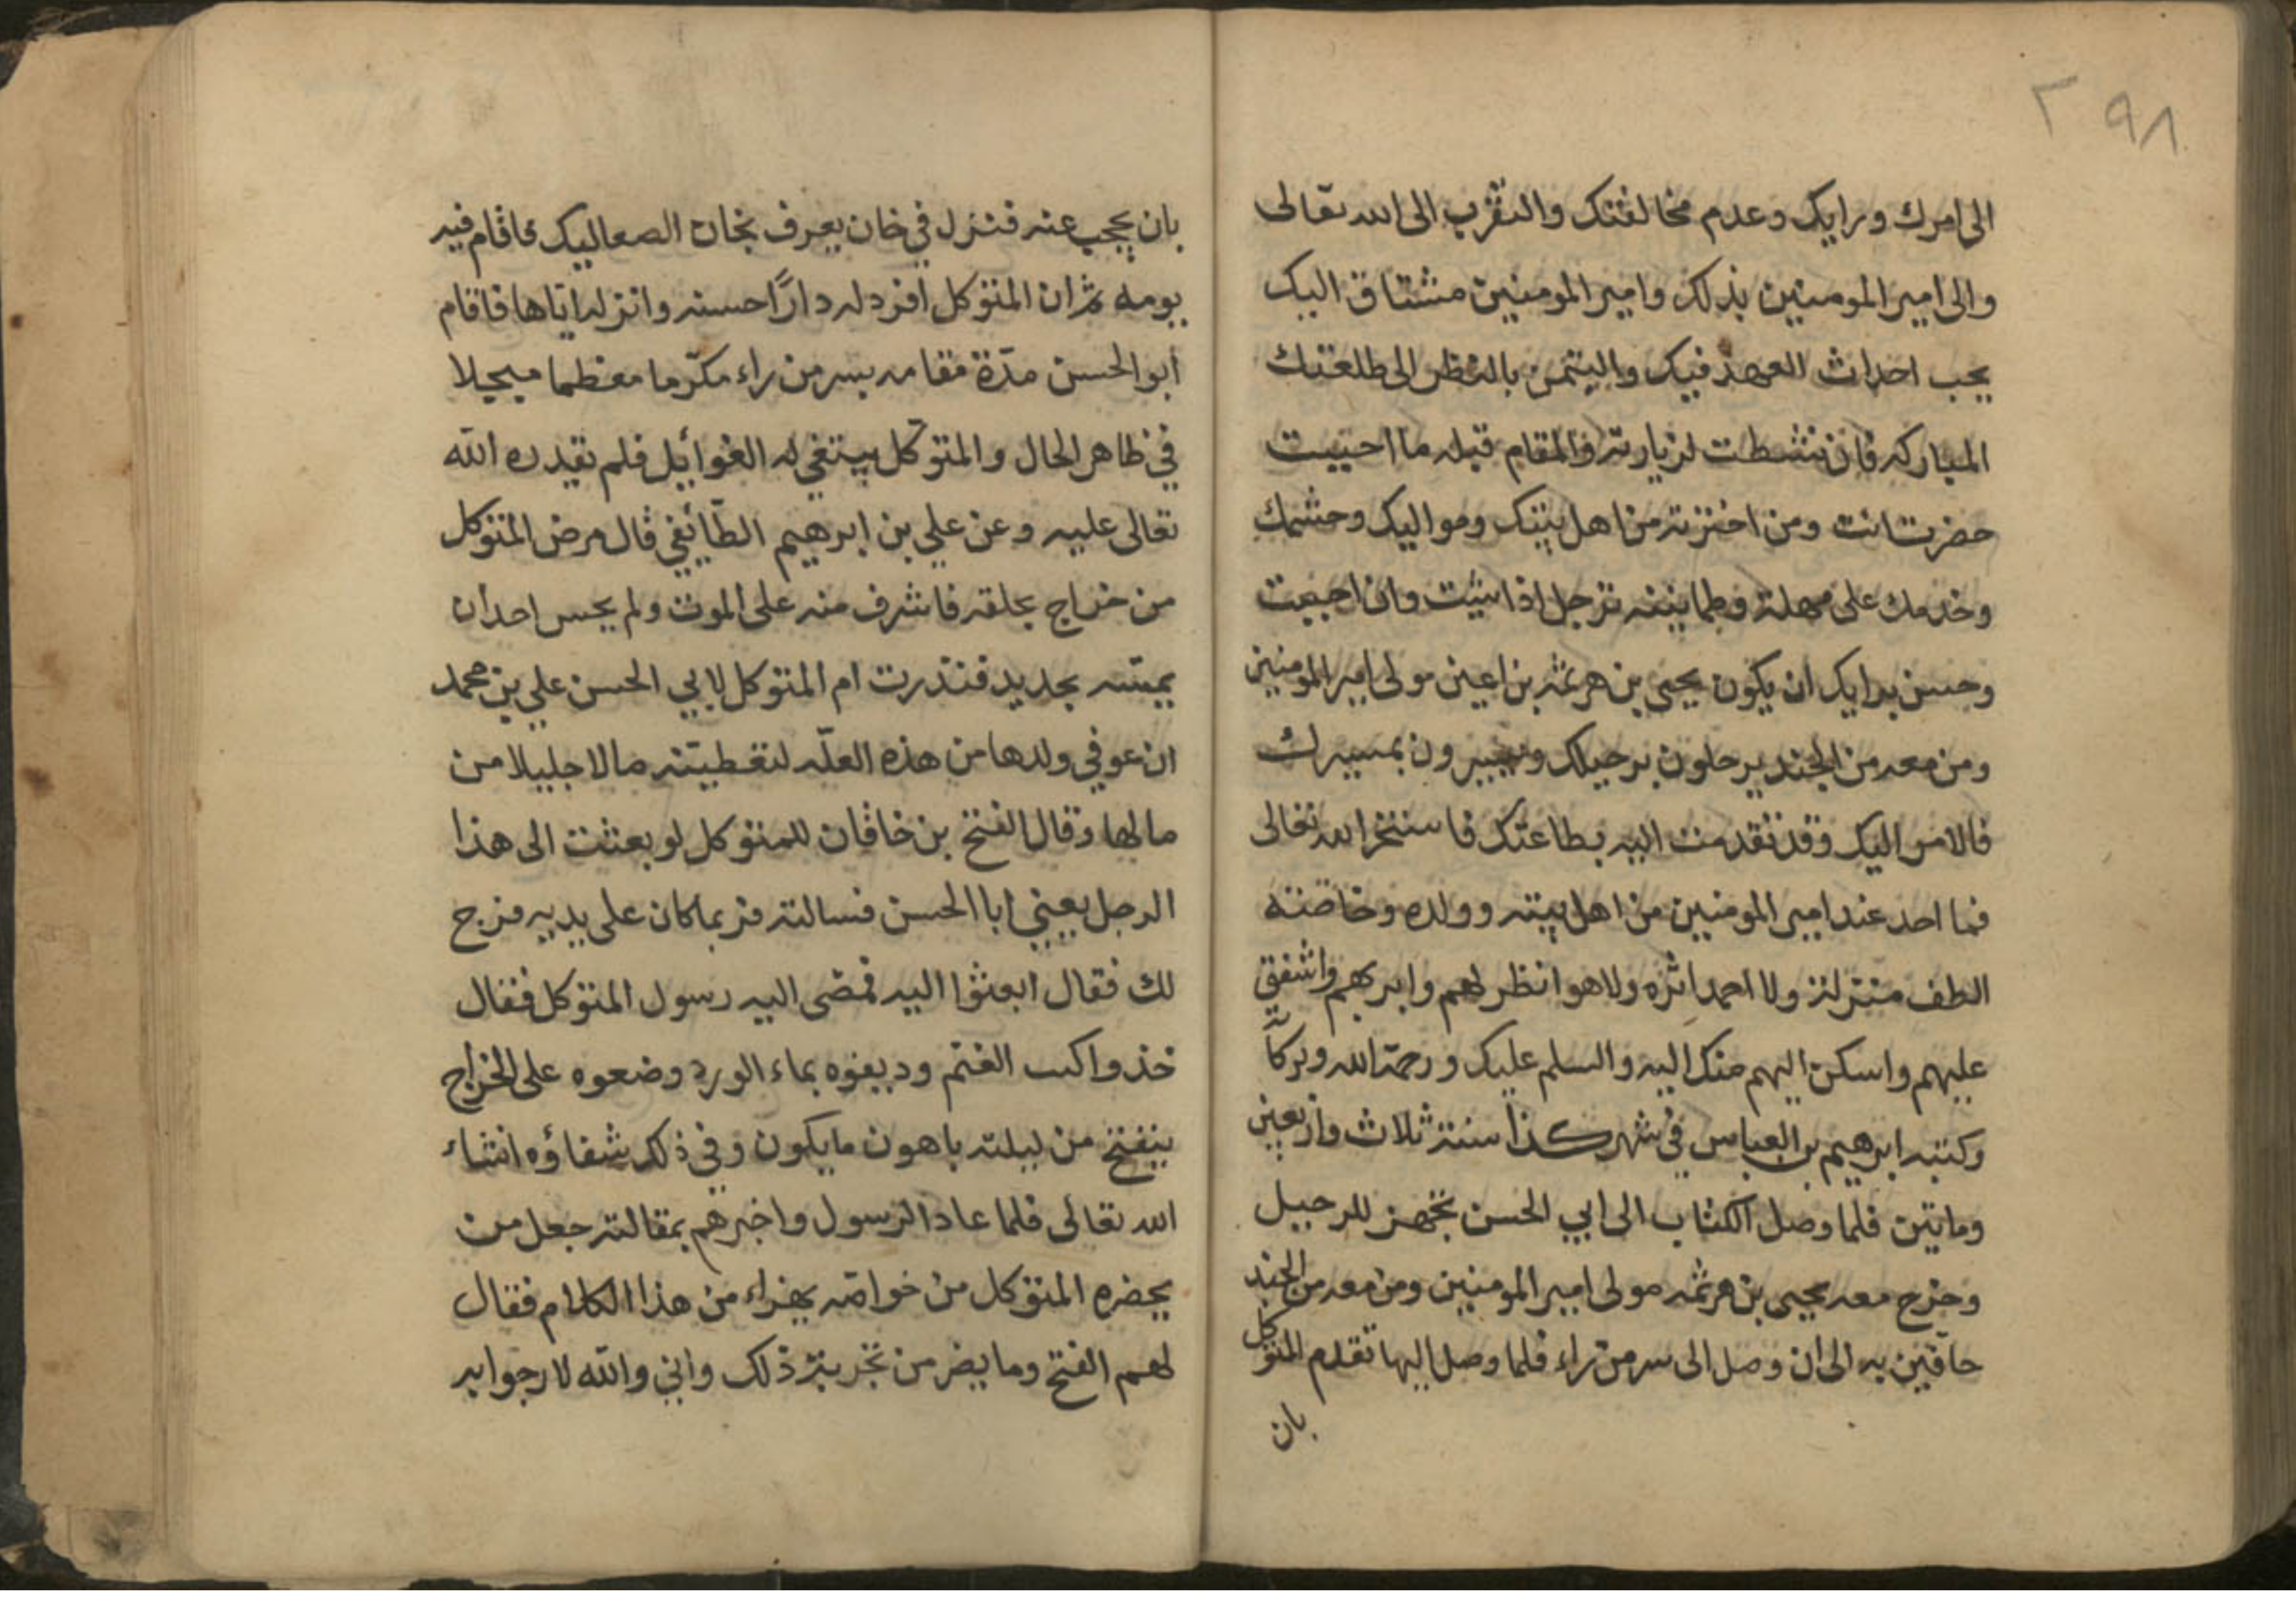 ٢٩٨
الى امرك ورايك وعدم مخالفتك والتقرب الى الله تعالى
والى امير المومنين بذلك وامير المومنين مشتاق اليك
يحب احداث العهد فيك والتيمن بالنظر الى طلعتك
المباركه فان نشطت لزيارته والمقام قبله ما احببت
حضرت انت ومن اخترته من اهل بيتك ومواليك وحشمك
وخدمك على مهلة وطمانينه ترحل اذا شيت وان احببت
وحسن برايك ان يكون يحيى بن هرثمه بن اعين مولى امير المومنين
ومن معه من الجند يرحلون برحيلك ويسيرون بمسيرك
فالامر اليك وقد تقدمت اليه بطاعتك فاستخر الله تعالى
فما احد عند امير المومنين من اهل بيته وولده وخاصته
الطف منزلة ولا احمد اثره ولا هو انظر لهم وابر بهم واشفق
عليهم واسكن اليهم منك اليه والسلم عليك ورحمة الله وبركاته
وكتبه ابرهيم بن العباس في شهر كذا سنة ثلاث واربعين
ومايتين فلما وصل الكتاب الى ابي الحسن تجهز للرحيل
وخرج معه يحيى بن هرثمه مولى امير المومنين ومن معه من الجند
حافين به الى ان وصل الى سر من راء فلما وصل اليها تقدم المتوكل
بان
بان يحجب عنه فنزل في خان يعرف بخان الصعاليك فاقام فيه
يومه ثم ان المتوكل افرد له دارًا حسنه وانزله اياها فاقام
ابو الحسن مدّة مقامه بسر من راء مكرّما معظما مبجلا
في ظاهر الحال والمتوكل يبتغي له الغوايل فلم يقدره الله
تعالى عليه وعن علي بن ابرهيم الطائفي قال مرض المتوكل
من خراج بحلقه فاشرف منه على الموت ولم يحس احد ان
يمسّه بحديد فنذرت ام المتوكل لابي الحسن علي بن محمد
ان عوفي ولدها من هذه العلّه لتعطيّنه مالا جليلا من
مالها وقال الفتح بن خاقان للمتوكل لو بعثت الى هذا
الرجل يعني ابا الحسن فسالته فربما كان على يديه فرج
لك فقال ابعثوا اليه فمضى اليه رسول المتوكل فقال
خذوا كسب الغنم وديفوه بماء الورد وضعوه على الخراج
ينفتح من ليلته باهون ما يكون وفي ذلك شفاؤه انشاء
الله تعالى فلما عاد الرسول واخبرهم بمقالته جعل من
يحضره المتوكل من خواصّه يهزاء من هذا الكلام فقال
لهم الفتح وما يضر من تجربة ذلك واني والله لارجوا به